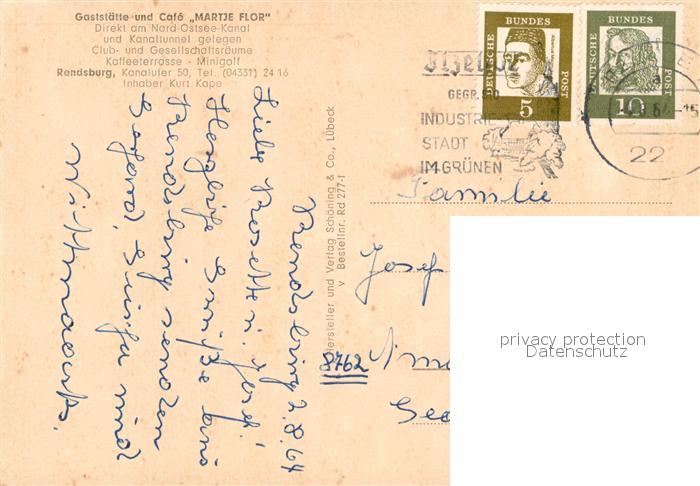 Gaststätte und Café „MARTJE FLOR"
Direkt am Nord-Ostsee-Kanal
und Kanaltunnel gelegen
Club- und Gesellschaftsräume
Kaffeeterrasse - Minigolf
Rendsburg, Kanalufer 50, Tel. (04331) 24 16
Inhaber Kurt Kape
Rendsburg 2.8.64
Liebe Rosette u. Josef!
Herzliche Grüße aus
Rendsburg senden
Gerhard, und
Hersteller und Verlag Schöning & Co., Lübeck
v Bestellnr. Rd 277-1
Itzehoe
GEGR. 810
INDUSTRIE
STADT
IM GRÜNEN
DEUTSCHE
BUNDES
POST
5
DEUTSCHE
BUNDES
POST
10
22
Familie
Josef
8762
privacy protection
Datenschutz